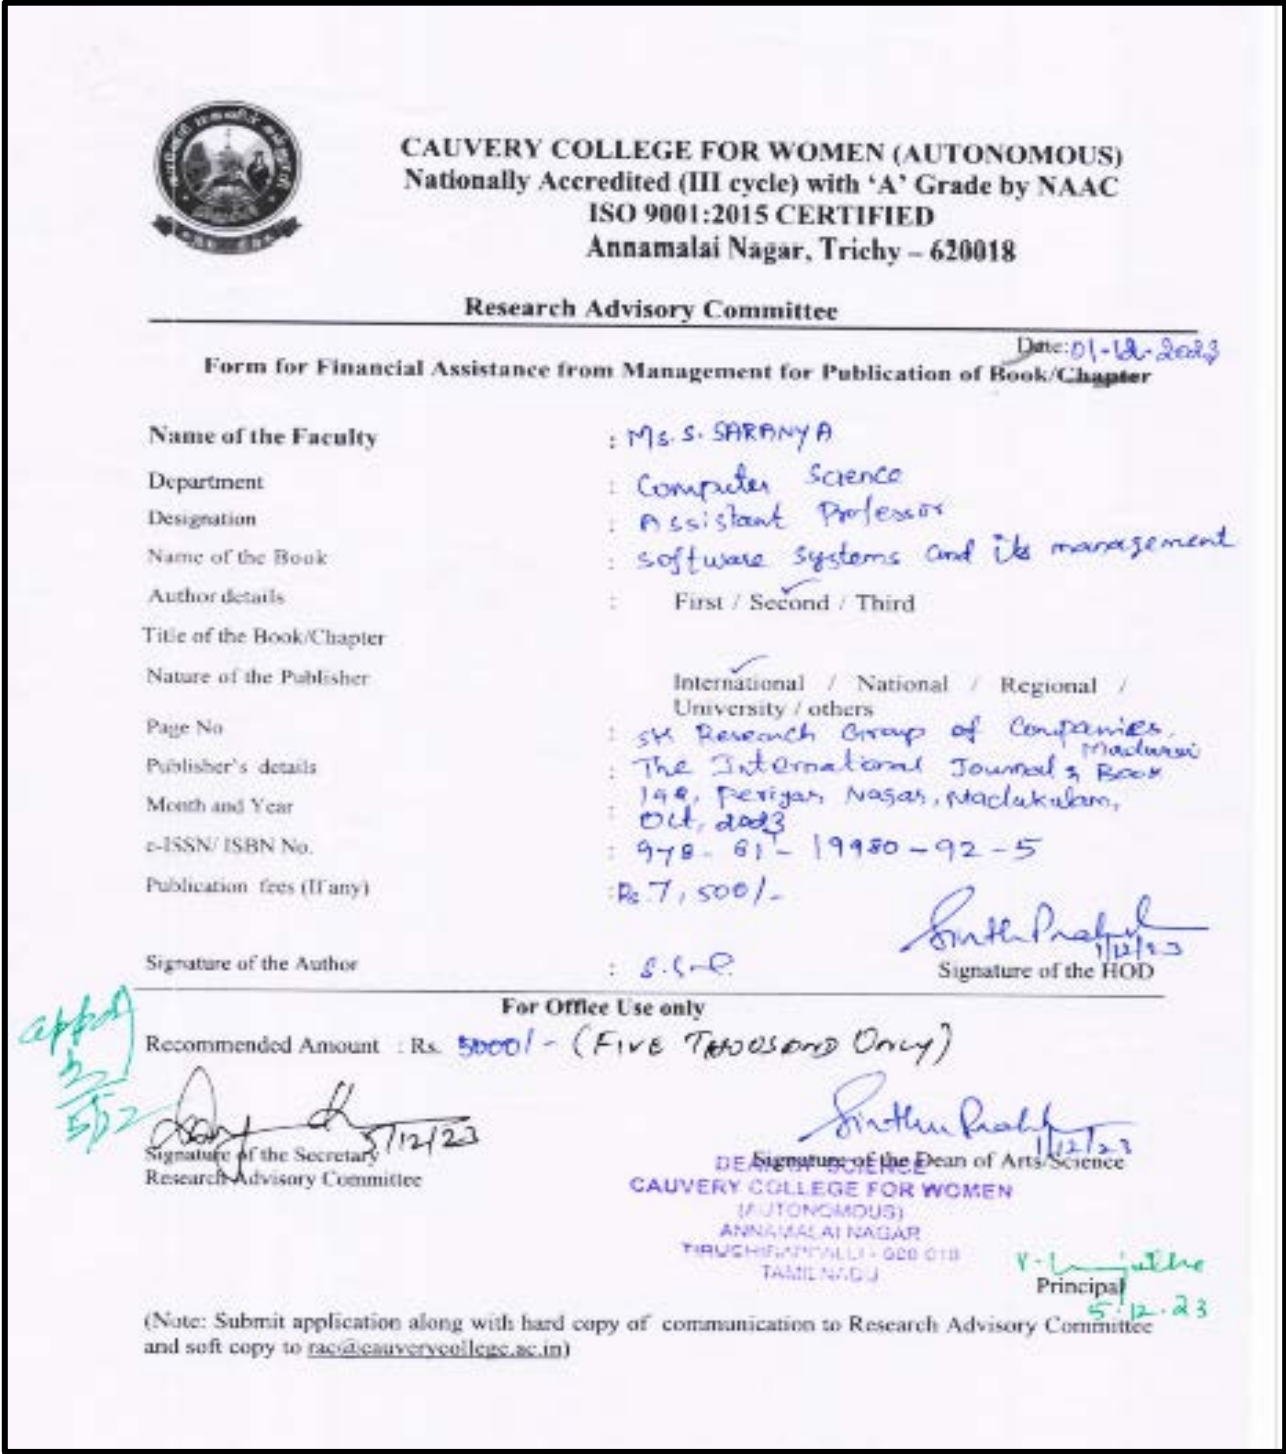 CAUVERY COLLEGE FOR WOMEN (AUTONOMOUS)
Nationally Accredited (III cycle) with ‘A’ Grade by NAAC
ISO 9001:2015 CERTIFIED
Annamalai Nagar, Trichy – 620018
Research Advisory Committee
Date: 01-12-2023
Form for Financial Assistance from Management for Publication of Book/Chapter
Name of the Faculty : Ms. S. SARANYA
Department : Computer Science
Designation : Assistant Professor
Name of the Book : Software systems and its management
Author details : First / Second / Third
Title of the Book/Chapter
Nature of the Publisher International / National / Regional /
University / others
Page No : SK Research Group of Companies,
Madurai
Publisher's details : The International Journal & Book
Month and Year : 142, Periyar Nagar, Madukulam,
Oct, 2023
e-ISSN/ ISBN No. : 978-81-19980-92-5
Publication fees (If any) :Rs. 7,500/-
1/12/23
Signature of the Author : Signature of the HOD
For Office Use only
appd
5/12
Recommended Amount : Rs. 5000/- (FIVE THOUSAND ONLY)
5/12/23
1/12/23
Signature of the Secretary
Research Advisory Committee
Signature of the Dean of Arts/Science
DEAN OF SCIENCE
CAUVERY COLLEGE FOR WOMEN
(AUTONOMOUS)
ANNAMALAI NAGAR
TIRUCHIRAPPALLI - 620 018
TAMIL NADU
Principal
5.12.23
(Note: Submit application along with hard copy of communication to Research Advisory Committee
and soft copy to rac@cauverycollege.ac.in)